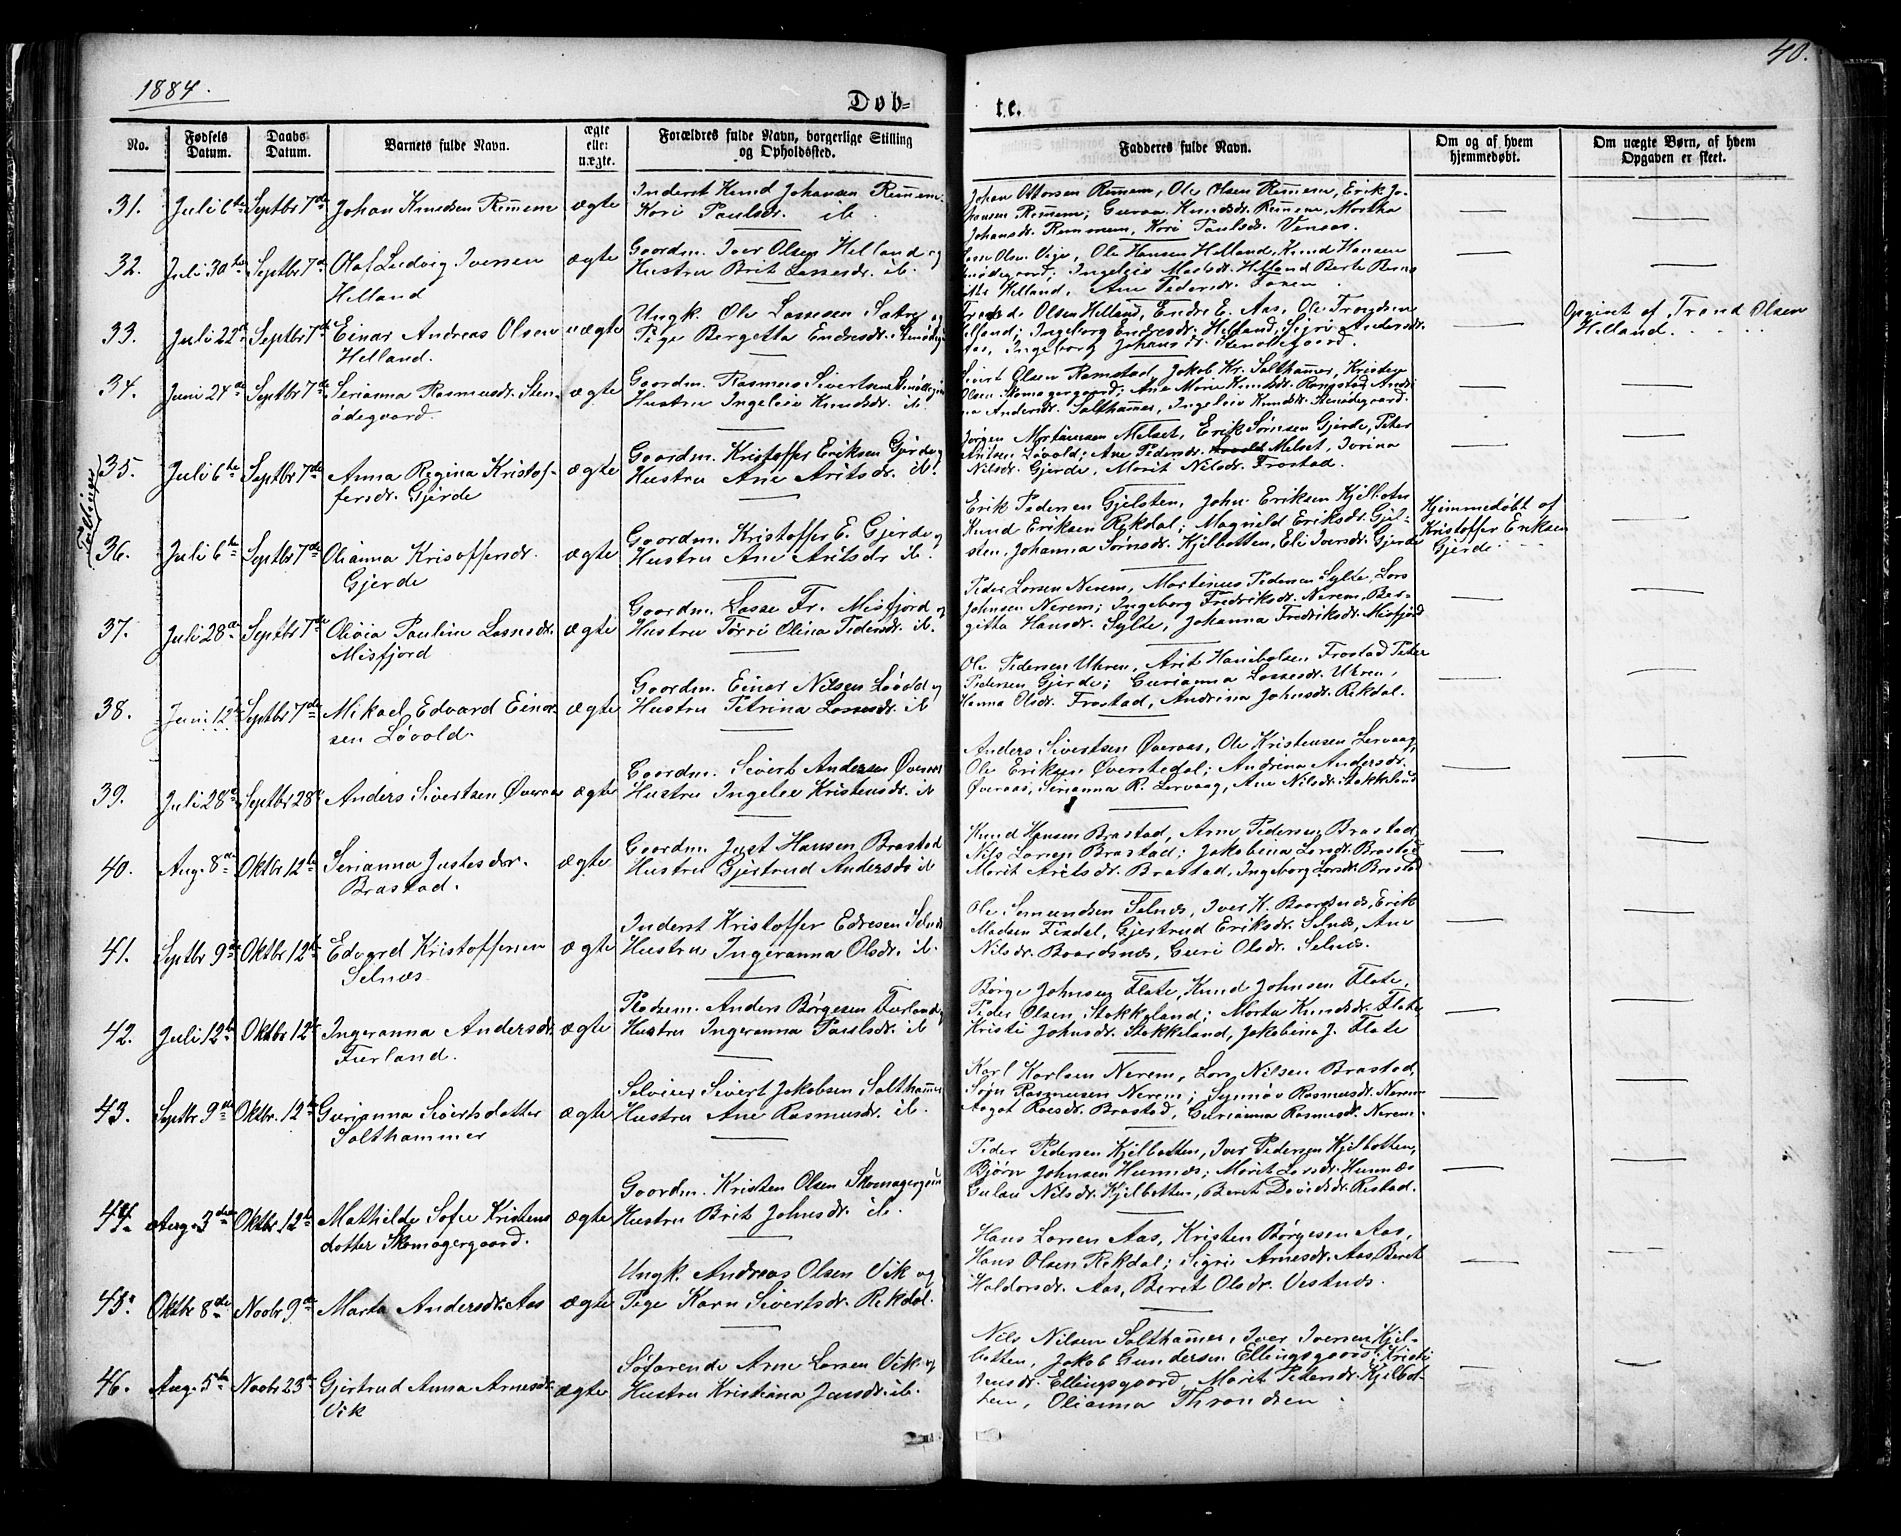 1884.
Døb-
te.
40.
No.
Fødsels Datum.
Daabs Datum.
Barnets fulde Navn.
ægte eller uægte.
Forældres fulde Navn, borgerlige Stilling og Opholdssted.
Fadderes fulde Navn.
Om og af hvem hjemmedøbt.
Om uægte Børn, af hvem Opgaven er skeet.
31. Juli 6te Septbr 7de Johan Knudsen Remmem ægte
Inderst Knud Johansen Remmem
Kari Paulsdr. ib.
Johan Ottersen Remmem, Ole Olsen Remmem, Erik Jo-
hansen Remmem; Guroa Knudsdr. Remmem, Martha
Johansdr. Remmem, Kari Paulsdr. Venaas.
32. Juli 30te Septbr 7de Olaf Ludvig Iversen
Helland
ægte
Gaardm. Iver Olsen Helland og
Hustru Brit Lassesdr. ib.
Olsen Vige, Ole Hansen Helland, Knud Hansen
Helland, Ane Pedersdr.
33. Juli 22de Septbr 7de Einar Andreas Olsen
Helland.
uægte
Ungk. Ole Lassesen Sætre og
Pige Bergetta Endresdr.
Olsen Helland, Endre E. Aas, Ole Trondsen
Helland; Ingeborg Endresdr. Helland, Sigri Andersdr.
Aas, Ingeborg Johansdr. Stenødegaard.
Opgivet af Trond Olsen
Helland.
34. Juni 24de Septbr 7de Serianna Rasmusdr. Sten-
ødegaard.
ægte
Gaardm. Rasmus Sivertsen Stenødeg.
Hustru Ingeleiv Knudsdr. ib.
Sivert Olsen Ramstad, Jakob Kr. Salthammer, Kristen
Olsen Skomagergaard; Ane Marie Knudsdr. Ramstad, Andri-
na Andersdr. Salthammer, Ingeleiv Knudsdr. Stenødegaard.
Tvillinger
35. Juli 6te Septbr 7de Anna Regina Kristof-
fersdr. Gjerde
ægte
Gaardm. Kristoffer Eriksen Gjerde og
Hustru Ane Aritsdr. ib.
Jørgen Mortensen Melset, Erik Sørnsen Gjerde, Peter
Aritsen Løvold; Ane Pedersdr. Melset, Ivrina
Nilsdr. Gjerde, Marit Nilsdr. Frostad.
36. Juli 6te Septbr 7de Olianna Kristoffersdr.
Gjerde
ægte
Gaardm. Kristoffer E. Gjerde og
Hustru Ane Aritsdr ib.
Erik Pedersen Gjelsten, John Eriksen Kjelbotn
Knud Eriksen Rekdal; Magnild Eriksdr. Gjel-
sten, Johanna Sørnsdr. Kjelbotten, Eli Iversdr. Gjerde
Hjemmedøbt af
Kristoffer Eriksen
Gjerde.
37. Juli 28de Septbr 7de Olivia Pauline Lassesdr.
Misfjord
ægte
Gaardm. Lasse Fr. Misfjord og
Hustru Tørri Olina Pedersdr. ib.
Peder Larsen Nerem, Martinus Pedersen Sylte, Lars
Johnsen Nerem; Ingeborg Fredriksdr. Nerem, Ber-
gitta Hansdr. Sylte, Johanna Fredriksdr. Misfjord
38. Juni 12te Septbr 7de Mikael Edvard Einar-
sen Løvold.
ægte
Gaardm. Einar Nilsen Løvold og
Hustru Petrina Lassesdr. ib
Ole Pedersen Uhren, Arit Hanibalsen Frostad Peder
Pedersen Gjerde; Gurianna Lassesdr. Uhren,
Hanna Olsdr. Frostad, Andrina Johnsdr. Rekdal.
39. Juli 28de Septbr 28de Anders Sivertsen Øveraas ægte
Gaardm. Sivert Andersen Øveraas
Hustru Ingeleiv Kristensdr. ib
Anders Sivertsen Øveraas, Ole Kristensen Lervaag,
Ole Eriksen Øverstedal; Andrina Andersdr.
Øveraas, Serianna R. Lervaag, Ane Nilsdr. Stokkeland
40. Aug. 8de Oktbr 12te Serianna Justesdtr.
Brastad.
ægte
Gaardm. Just Hansen Brastad
Hustru Gjertrud Andersdr ib
Knud Hansen Brastad, Arne Pedersen Brastad,
Nils Larsen Brastad; Jakobina Larsdr. Brastad
Marit Aritsdr. Brastad, Ingeborg Larsdr. Brastad
41. Septbr 9de Oktbr 12te Edvard Kristoffersen
Selnæs.
ægte
Inderst Kristoffer Edresen Selnæs
Hustru Ingeranna Olsdr. ib.
Ole Semundsen Selnæs, Iver K. Baardsnæs, Erik
Madsen Fixdal, Gjertrud Eriksdr. Selnæs, Ane
Nilsdr. Baardsnæs, Guri Olsdr. Selnæs.
42. Juli 12te Oktbr 12te Ingeranna Andersdr.
Furland.
ægte
Pladsm. Anders Børgesen Furland og
Hustru Ingeranna Paulsdr. ib
Børge Johnsen Flate, Knud Johnsen Flate,
Peder Olsen Stokkeland; Marta Knudsdr. Flate
Kristi Johnsdr. Stokkeland, Jakobina J. Flate
43. Septbr 9de Oktbr. 12te Gurianna Sivertsdatter
Salthammer
ægte
Selveier Sivert Jakobsen Salthammer
Hustru Ane Rasmusdr. ib.
Karl Karlsen Nerem, Lars Nilsen Brastad,
Sørn Rasmussen Nerem; Synnøv Rasmusdr. Nerem
Aagot Roesdr. Brastad, Gurianna Rasmusdr. Nerem.
44. Aug. 3die Oktbr. 12te Mathilde Sofie Kristens
datter Skomagergaard.
ægte
Gaardm. Kristen Olsen Skomagergaard
Hustru Brit Johnsdr. ib.
Peder Pedersen Kjelbotten, Iver Pedersen Kjelbotten,
Bjørn Johnsen Humnæs; Marit Larsdr. Humnæs
Gulau Nilsdr. Kjelbotten, Beret Davidsdr. Restad.
45. Oktbr 8de Novbr. 9de Marta Andersdr. Aas ægte
Ungk. Andreas Olsen Vik og
Pige Karn Sivertsdr. Rekdal.
Hans Larsen Aas, Kristen Børgesen Aas,
Hans Olsen Rekdal; Sigri Arnesdr. Aas, Beret
Haldorsdr. Aas, Beret Olsdr. Vestnæs.
46. Aug. 5te Novbr 23de Gjertrud Anna Arnesdr.
Vik
ægte
Søfarende Arne Larsen Vik og
Hustru Kristiana Jensdr. ib.
Nils Nilsen Salthammer, Iver Iversen Kjel-
botten, Jakob Gundersen Ellingsgaard; Kristi
Jensdr. Ellingsgaard, Marit Petersdr. Kjelbot-
ten, Olianna Throndsen.